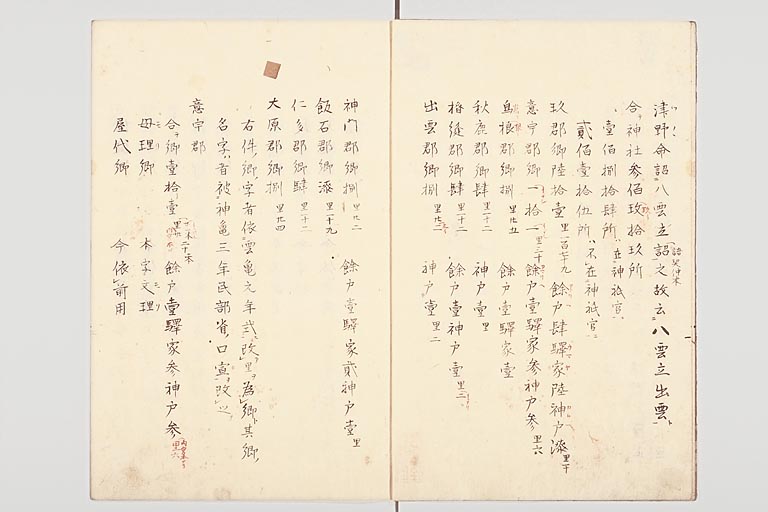 津野命詔八雲立詔之故云八雲立出雲
合神社参佰玖拾玖所
壹佰捌拾肆所 在神祇官
貳佰壹拾伍所 不在神祇官
玖郡郷陸拾壹 里一百七十九 餘戸肆驛家陸神戸漆 里十一
意宇郡郷一拾一 里三十 餘戸壹驛家参神戸参 里六
島根郡郷捌 里廿五 餘戸壹驛家壹
秋鹿郡郷肆 里一十二 神戸壹 里
楯縫郡郷肆 里一十二 餘戸壹神戸壹 里
出雲郡郷捌 里廿三 神戸壹 里二
神門郡郷捌 里廿二 餘戸壹驛家貳神戸壹 里
飯石郡郷漆 里一十九
仁多郡郷肆 里一十二
大原郡郷捌 里廿四
右件郷字者依霊亀元年式改里為郷其郷
名字者被神亀三年民部省口宣改之
意宇郡
合郷壹拾壹 餘戸壹驛家参神戸参 里六
母理郷 本字文理
屋代郷 今依前用